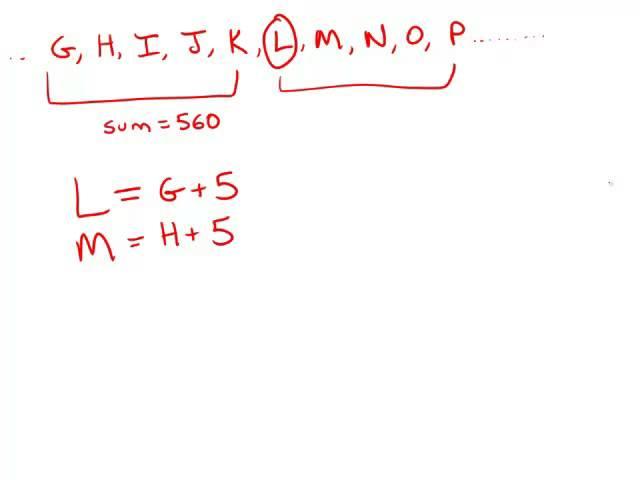 .. G, H, I, J, K, L, M, N, O, P ........
sum = 560
L = G + 5
M = H + 5